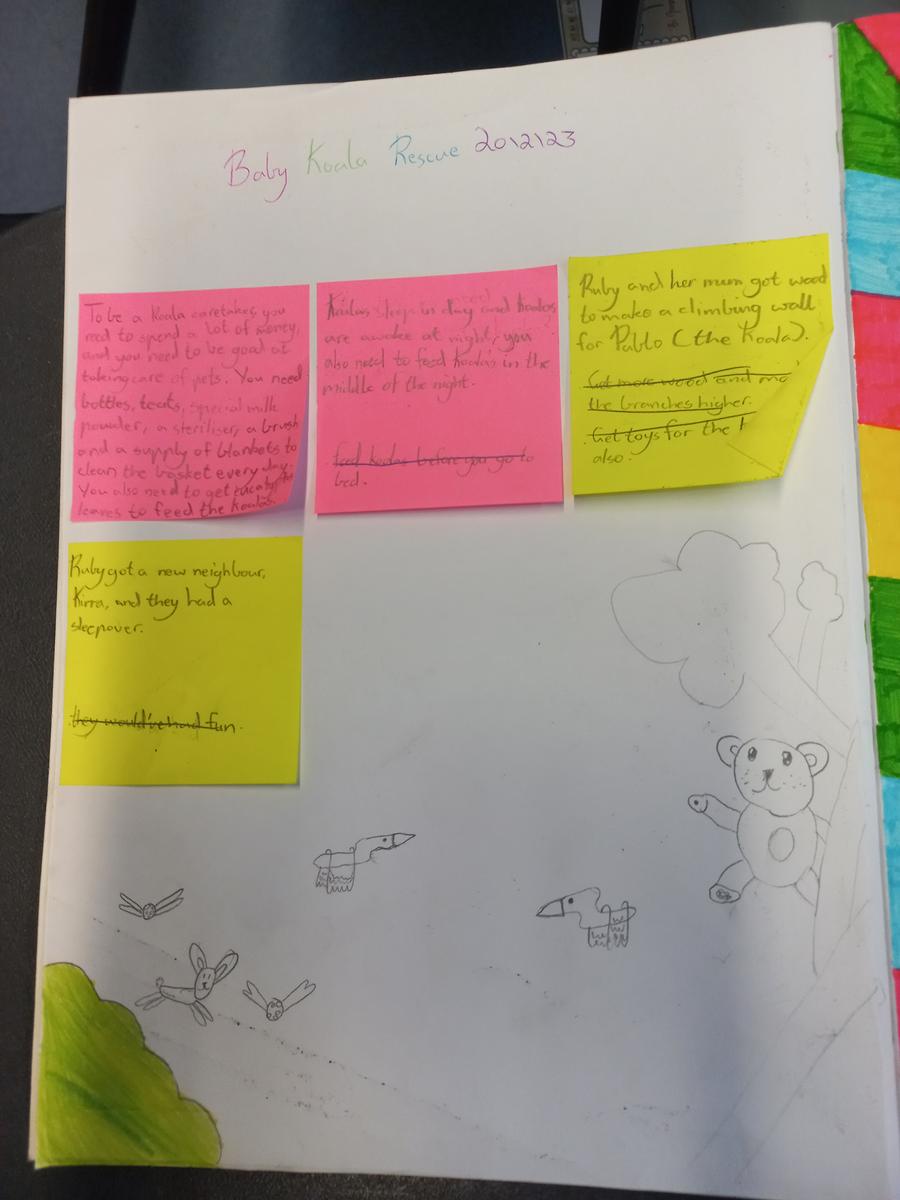 Baby Koala Rescue 20\2\23
To be a Koala caretaker, you
need to spend a lot of money,
and you need to be good at
taking care of pets. You need
bottles, teats, special milk
powder, a steriliser, a brush
and a supply of blankets to
clean the basket every day.
You also need to get
leaves to feed the Koalas.
Koalas sleep in day and Koalas
are awake at night, you
also need to feed Koalas in the
middle of the night.
feed koalas before you go to
bed.
Ruby and her mum got wood
to make a climbing wall
for Pablo (the Koala).
Get more wood and
the branches higher.
Get toys for the
also.
Ruby got a new neighbour,
Kirra, and they had a
sleepover.
they would've had fun.